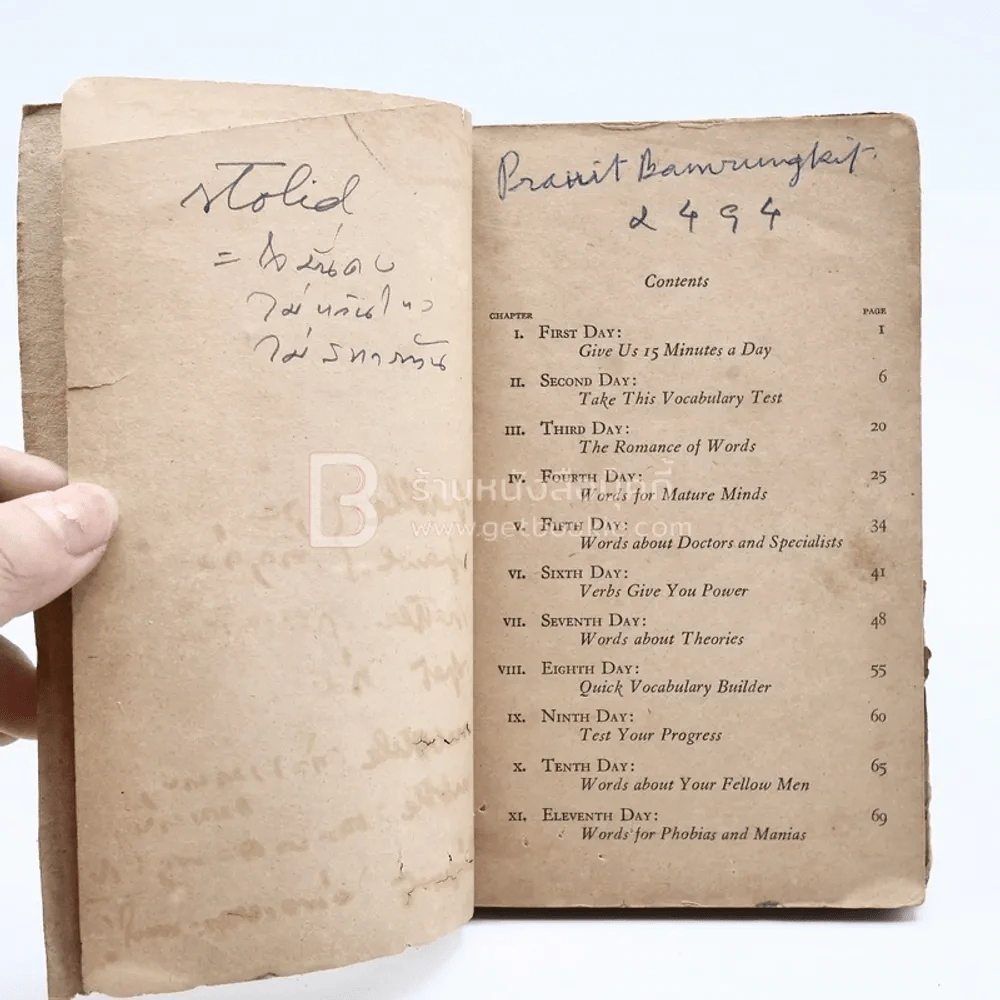 stolid
= ใจมั่นคง
ไม่หวั่นไหว
Pranit Bamrungkit.
2494
Contents
CHAPTER PAGE
I. FIRST DAY: 1
Give Us 15 Minutes a Day
II. SECOND DAY: 6
Take This Vocabulary Test
III. THIRD DAY: 20
The Romance of Words
IV. FOURTH DAY: 25
Words for Mature Minds
V. FIFTH DAY: 34
Words about Doctors and Specialists
VI. SIXTH DAY: 41
Verbs Give You Power
VII. SEVENTH DAY: 48
Words about Theories
VIII. EIGHTH DAY: 55
Quick Vocabulary Builder
IX. NINTH DAY: 60
Test Your Progress
X. TENTH DAY: 65
Words about Your Fellow Men
XI. ELEVENTH DAY: 69
Words for Phobias and Manias
B ร้านหนังสือบุ๊คกี้